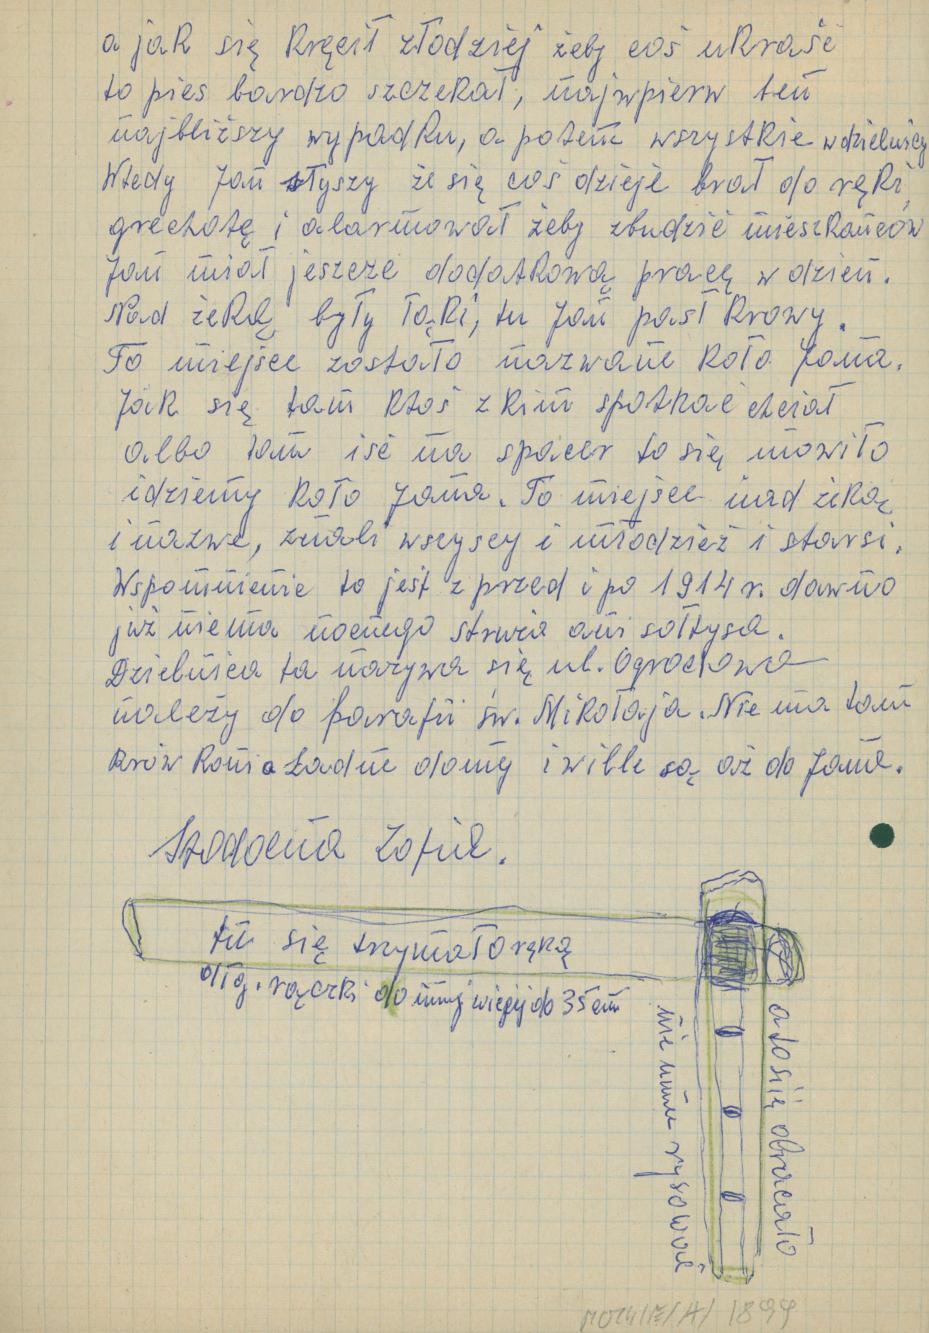 a jak się kręcił złodziej żeby coś ukraść
to pies bardzo szczekał, najwpierw ten
najbliższy wypadku, a potem wszystkie w dzielnicy
Wtedy Jan słyszy że się coś dzieje brał do ręki,
grechotę i alarmował żeby zbudzić mieszkańców
Jan miał jeszcze dodatkową pracę w dzień.
Nad żeką były łąki, tu Jan pasł krowy.
To miejsce zostało nazwane koło Jana.
Jak się tam ktoś z kim spotkać chciał
albo tam iść na spacer to się mowiło
idziemy koło Jana. To miejsce nad żeką
i nazwe, znali wszyscy i młodzież i starsi.
Wspomnienie to jest z przed i po 1914 r. dawno
już niema nocnego struża ani sołtysa.
Dzielnica ta nazywa się ul. Ogrodowa
należy do parafii św. Mikołaja. Nie ma tam
krów koni a Ładne domy i wille są aż do Jana.
Zofia.
tu się trzymało ręką
dłg. rączki do mniej więcej do 35 cm
nie umie rysować
a to się obracało
1899